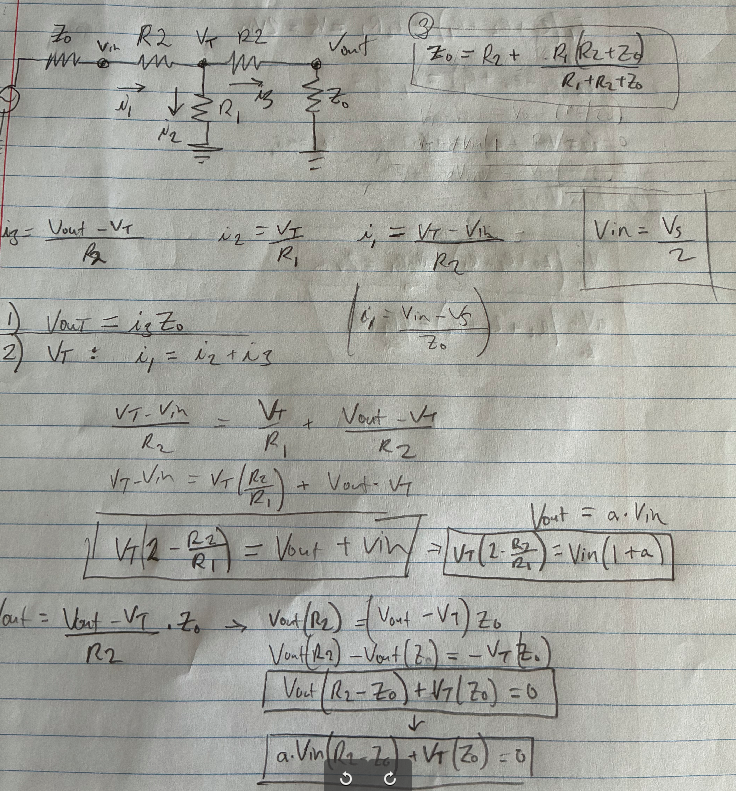 Zo Vin R2 VT R2 Vout
③ Zo = R2 + R1(R2+Zo) / R1+R2+Zo
i1 i2 R1 i3 Zo
i3 = Vout - VT / R2 i2 = VT / R1 i1 = VT - Vin / R2 Vin = Vs / 2
1) Vout = i3 Zo (i1 = Vin - Vs / Zo)
2) VT : i1 = i2 + i3
VT - Vin / R2 = VT / R1 + Vout - VT / R2
VT - Vin = VT (R2 / R1) + Vout - VT
Vout = a · Vin
VT (2 - R2 / R1) = Vout + Vin ⇒ VT (2 - R2 / R1) = Vin (1 + a)
out = Vout - VT / R2 · Zo → Vout (R2) = (Vout - VT) Zo
Vout (R2) - Vout (Zo) = - VT (Zo)
Vout (R2 - Zo) + VT (Zo) = 0
↓
a · Vin (R2 - Zo) + VT (Zo) = 0